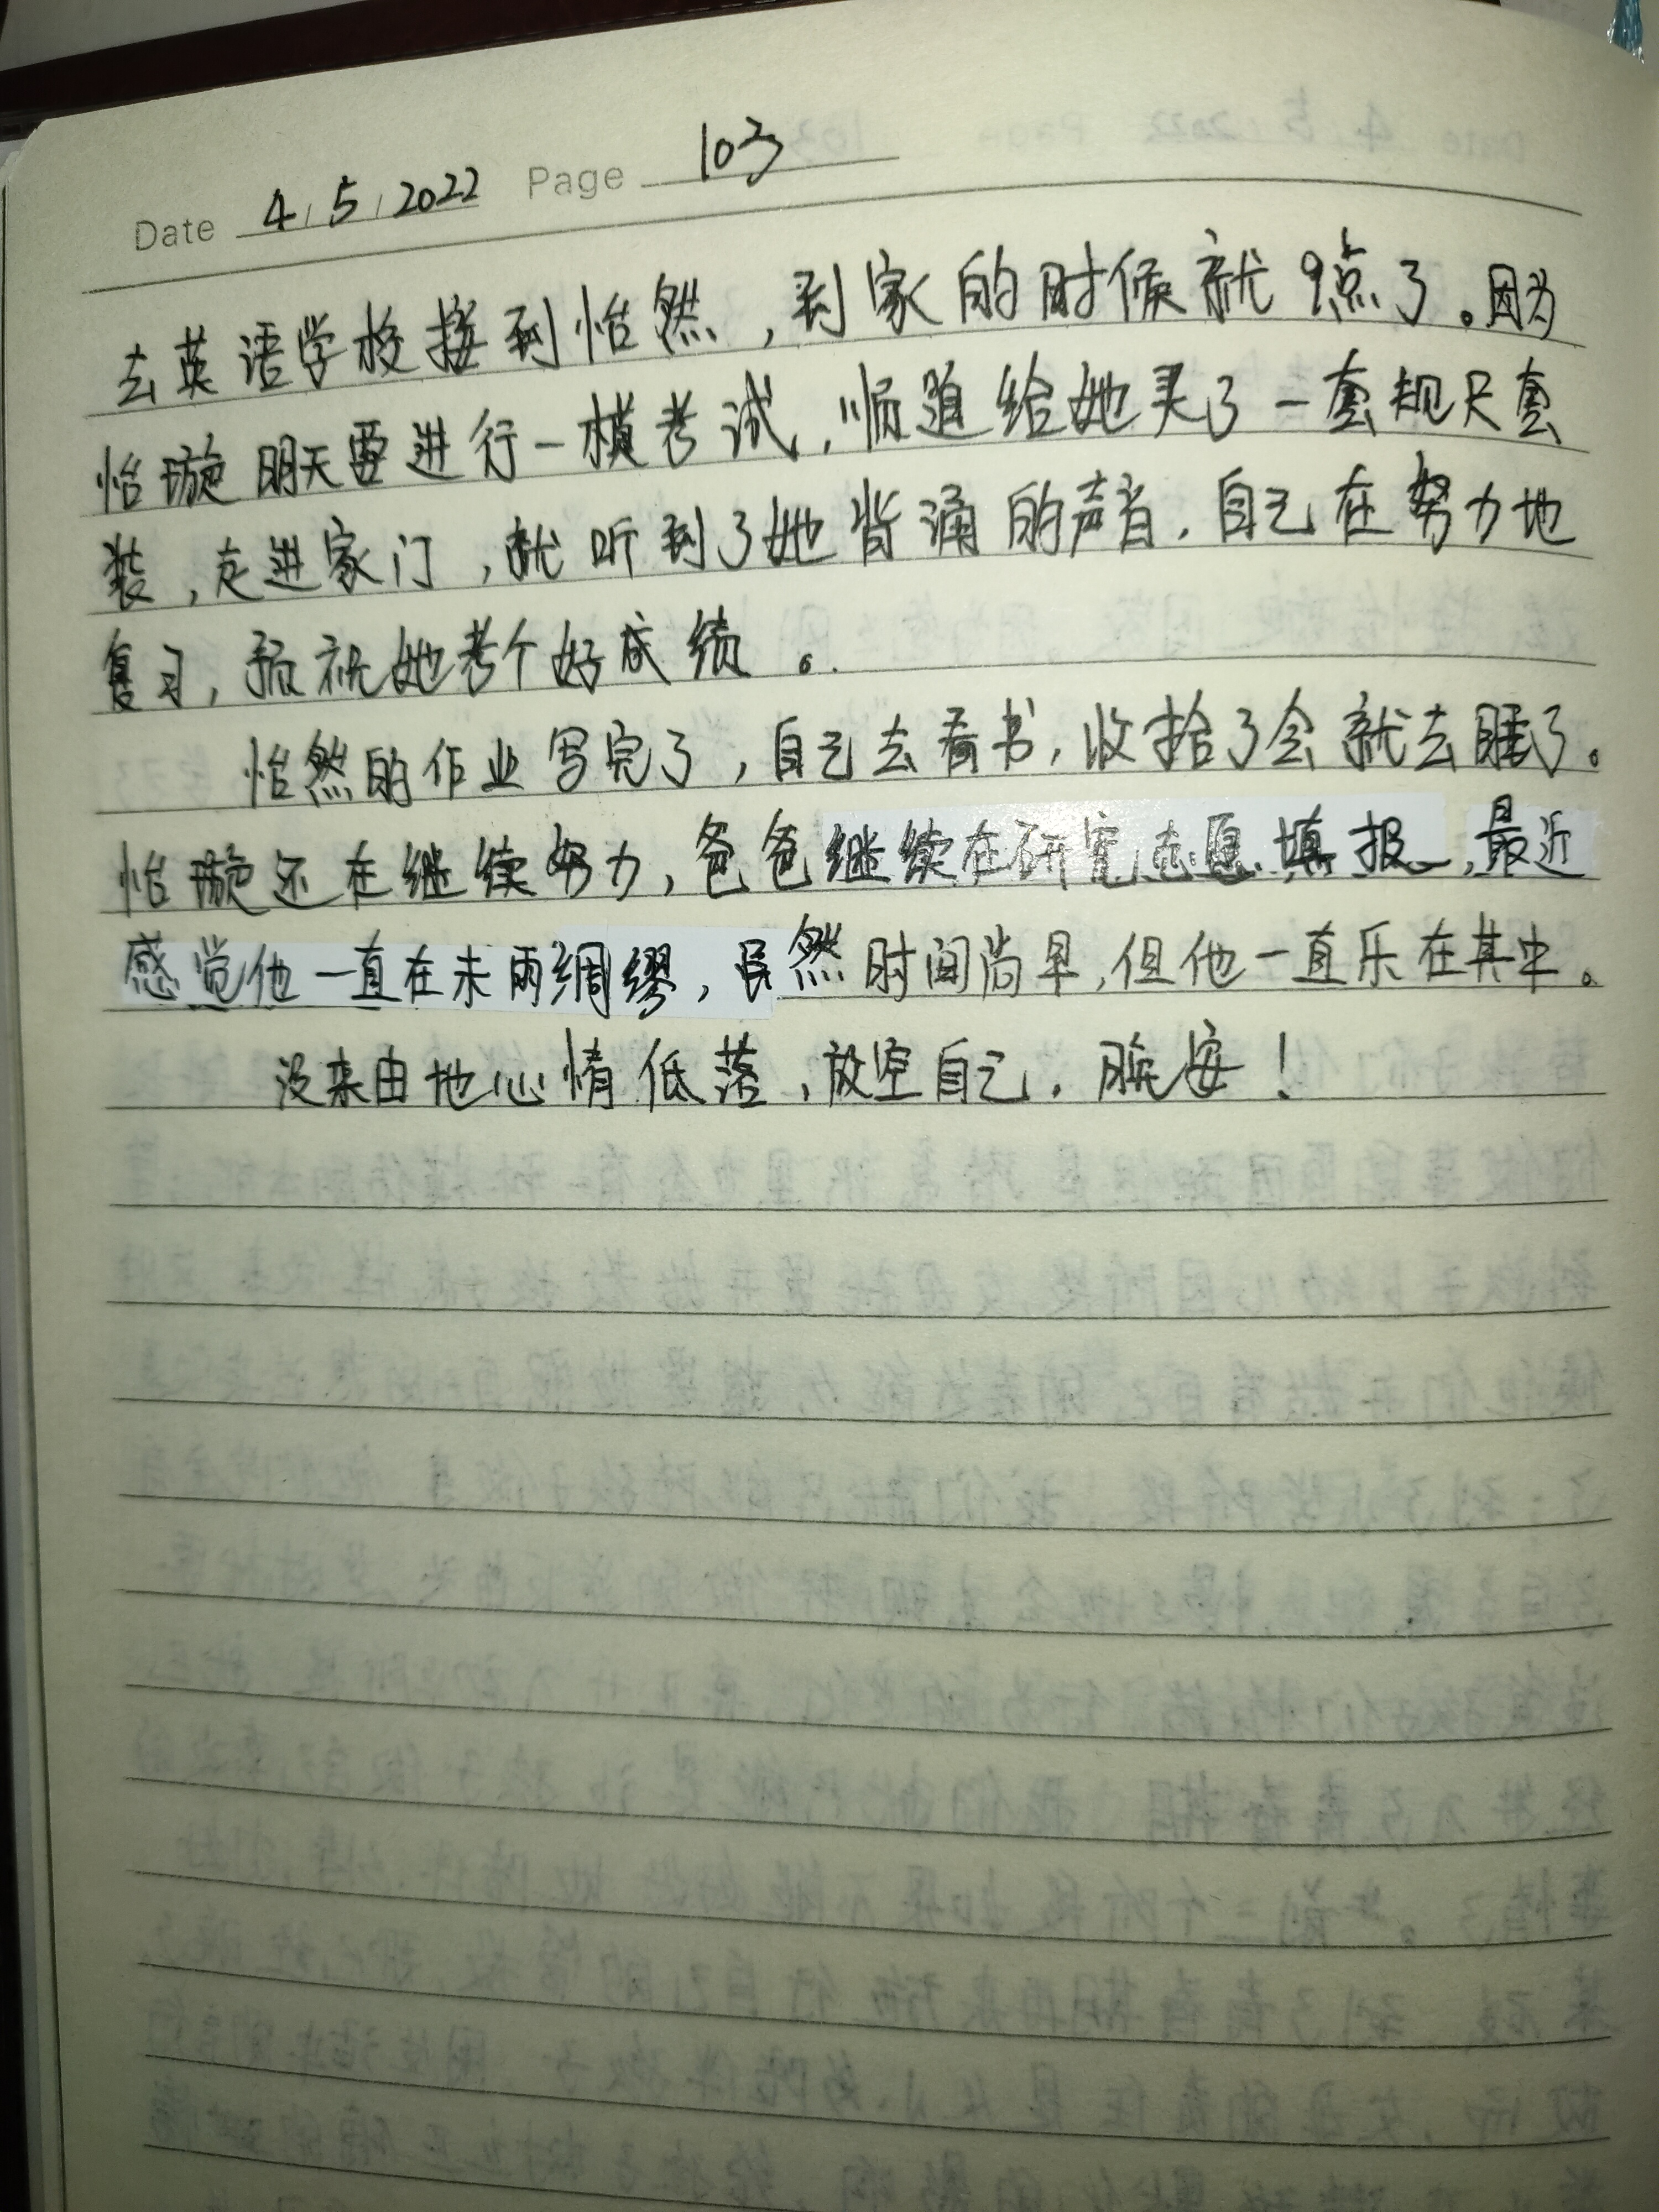 Date 4/5/2022 Page 103
去英语学校接到怡然，到家的时候就9点了。因为
怡璇明天要进行一模考试，顺道给她买了一套规尺套
装，走进家门，就听到了她背诵的声音，自己在努力地
复习，预祝她考个好成绩。
怡然的作业写完了，自己去看书，收拾了会就去睡了。
怡璇还在继续努力，爸爸继续在研究志愿填报，最近
感觉他一直在未雨绸缪，虽然时间尚早，但他一直乐在其中。
没来由地心情低落，放空自己，晚安！